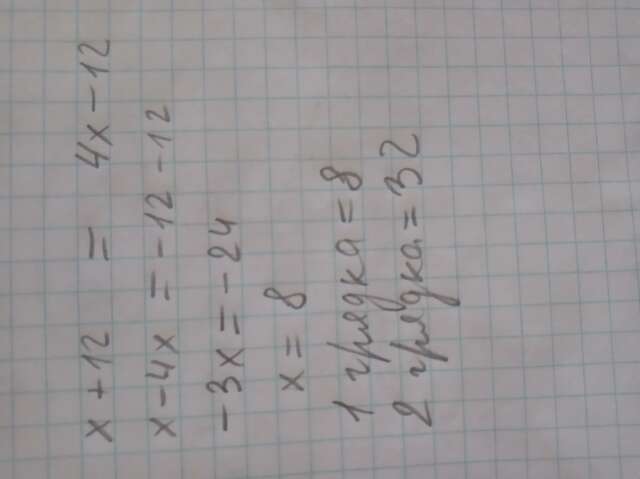 x + 12 = 4x - 12
x - 4x = -12 - 12
-3x = -24
x = 8
1 грядка = 8
2 грядка = 32